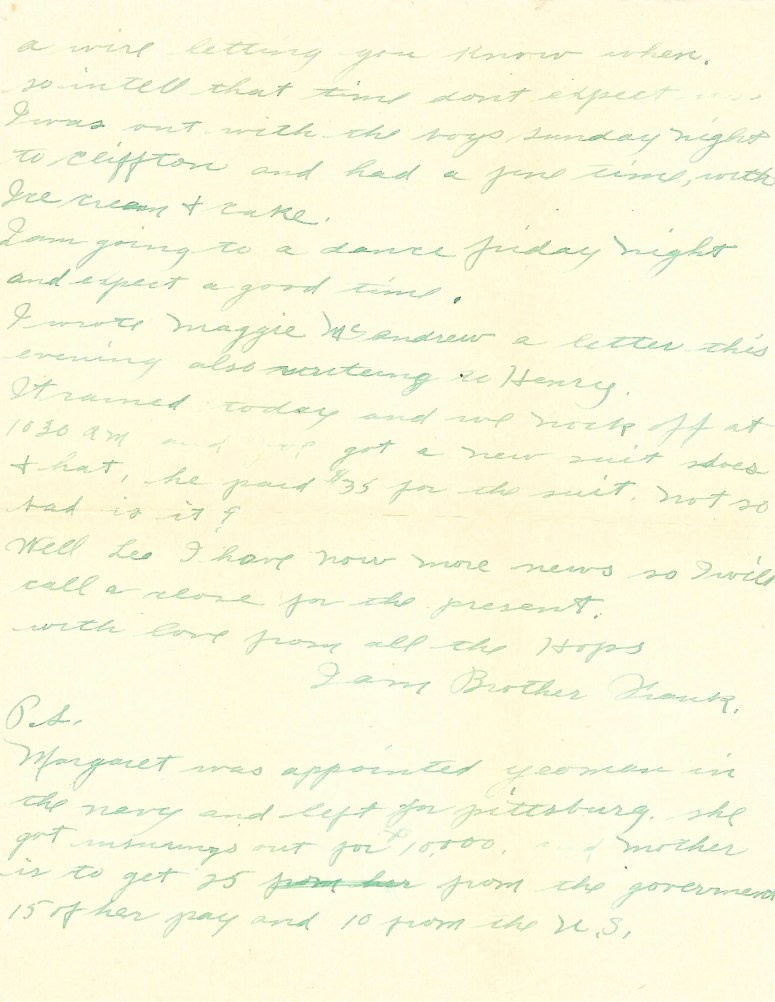 a wire letting you know when.
so intell that time dont expect
I was out with the boys sunday night
to cliffton and had a fine time, with
Ice cream & cake.
I am going to a dance friday night
and expect a good time.
I wrote Maggie McAndrew a letter this
evening also writeing to Henry.
It rained today and we nock off at
1030 AM and we got a new suit shoes
& hat, he paid $35 for the suit. Not so
bad is it?
Well Leo I have now more news so I will
call a close for the present.
with love from all the Hops
I am Brother Frank.
P.S.
Margaret was appointed yeoman in
the navy and left for pittsburg. she
got insurings out for $10,000. and mother
is to get 25 from her from the government
15 of her pay and 10 from the U.S.